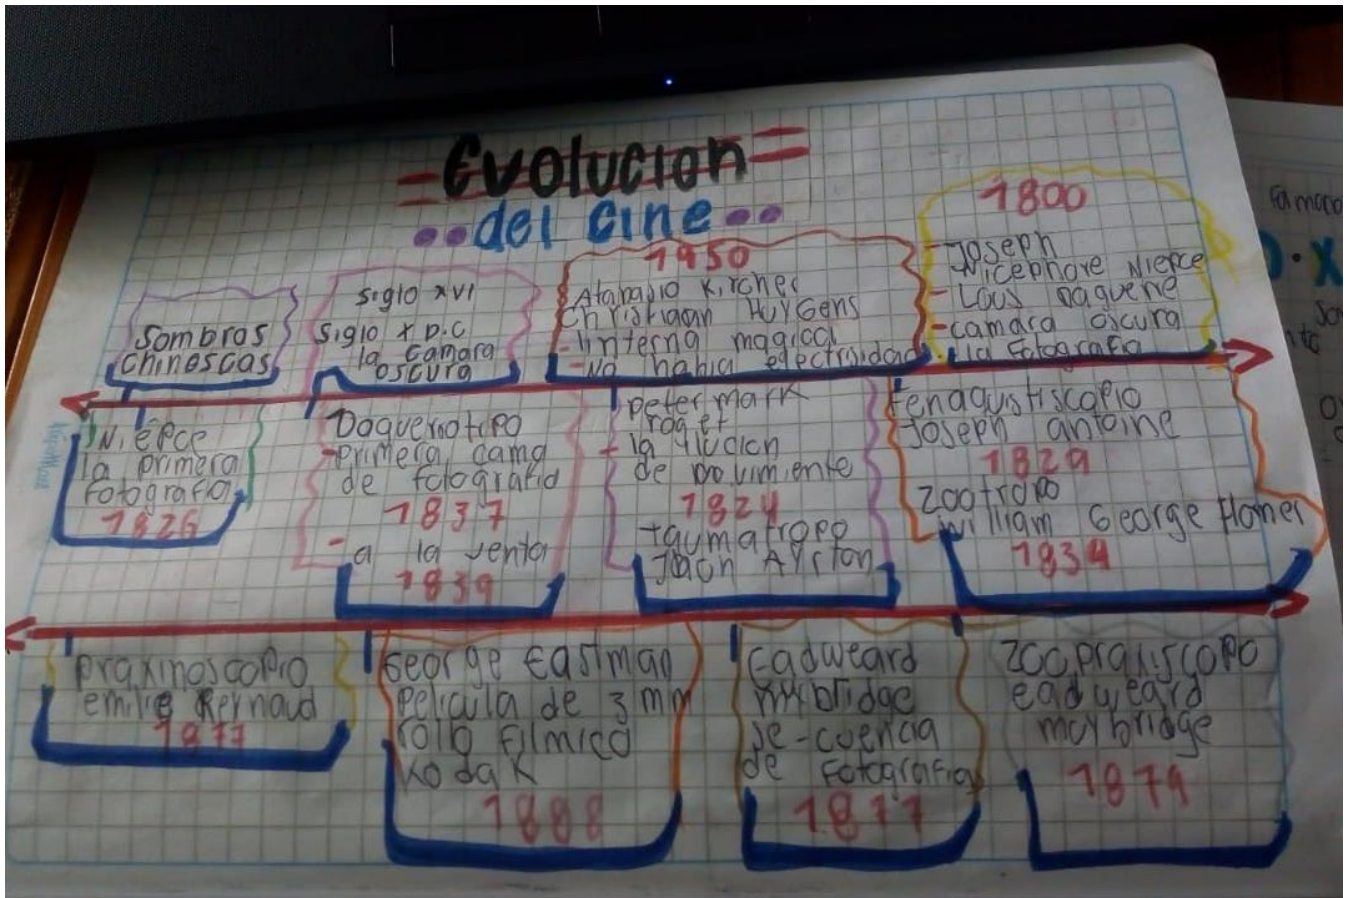 Evolucion
del cine
Sombras
chinescas
siglo xvi
siglo x D.C
la camara
oscura
1950
Atanasio Kircher
Christiaan Huygens
-linterna magica
-No habia electrisidad
1800
-Joseph
Nicephore Niepce
-Laus Daguerre
-camara oscura
la fotografia
Niepce
la primera
fotografia
1826
Daguerrotipo
-primera cama
de fotografia
1837
-a la venta
1839
peter mark
roget
-la ilucion
de movimiento
1824
taumatropo
John Ayrton
fenaquistiscopio
Joseph antoine
1829
zootropo
william George Horner
1834
praxinoscopio
emilie Reynaud
1877
George Eastman
pelicula de 3 mm
rollo filmico
Kodak
1888
Eadweard
mybridge
se-cuencia
de fotografias
1877
zoopraxiscopo
eadweard
muybridge
1879